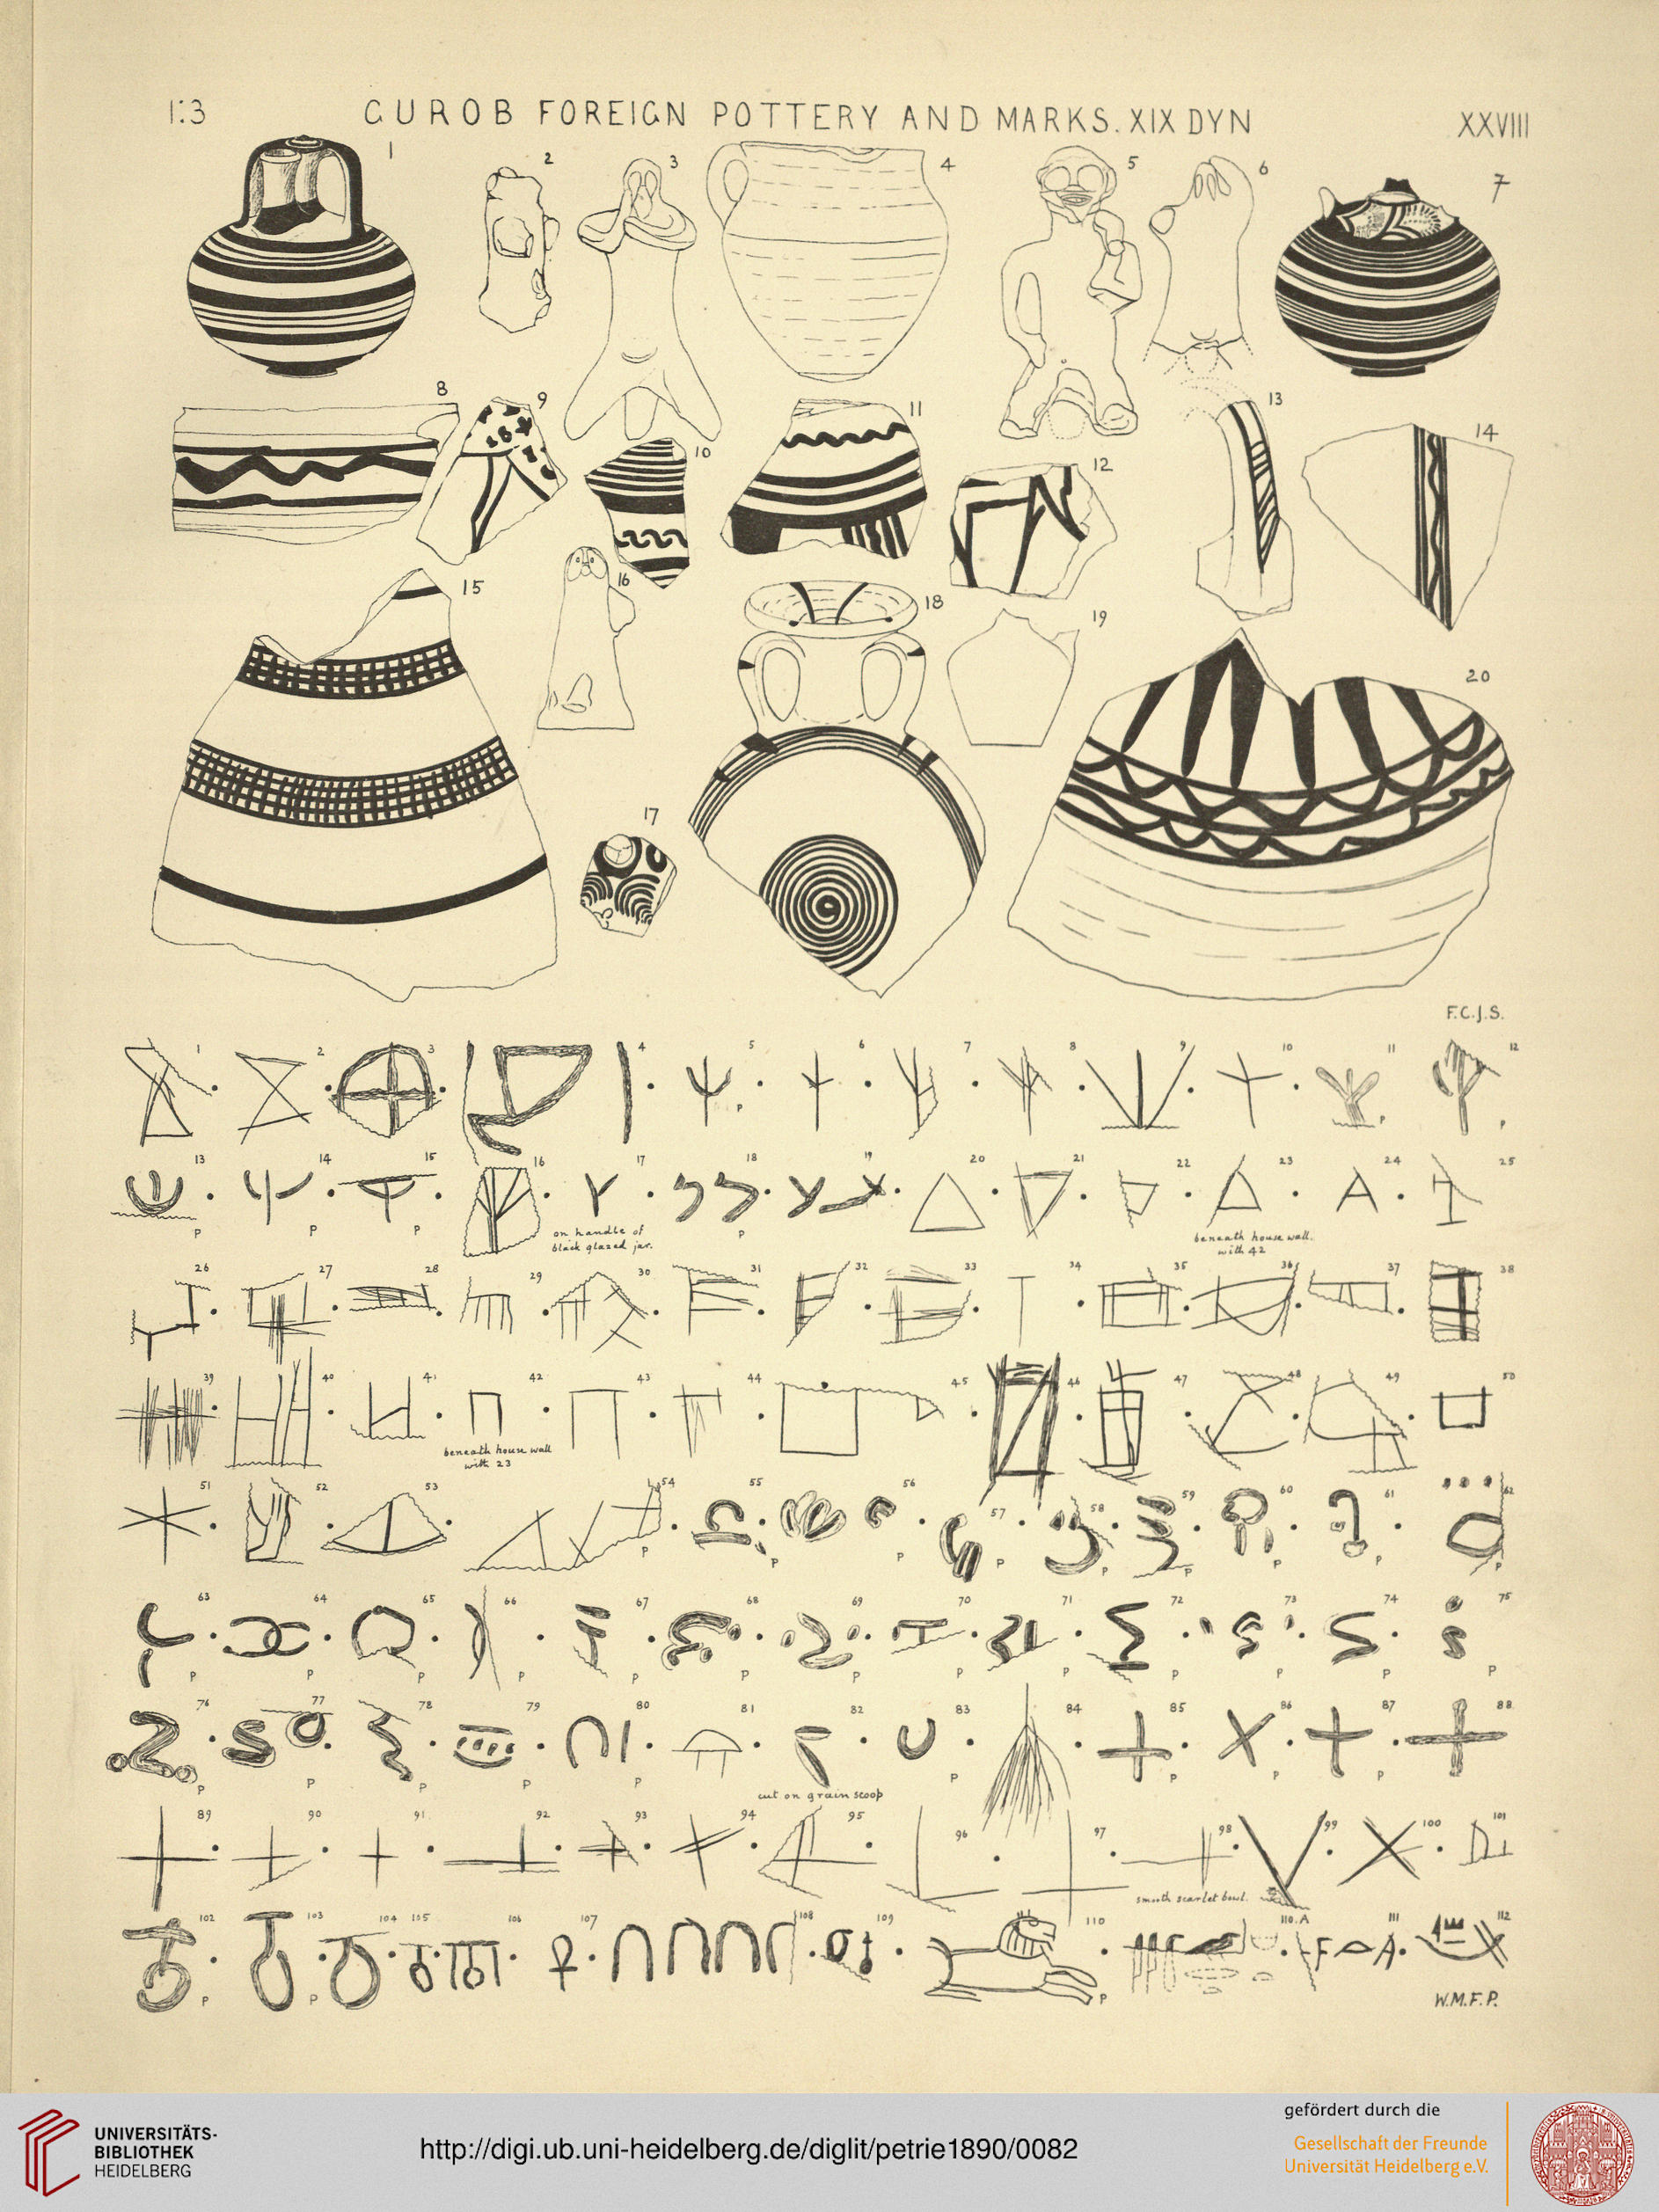 1:3 GUROB FOREIGN POTTERY AND MARKS. XIX DYN XXVIII
1 2 3 4 5 6 7
8 9 10 11 12 13 14
15 16 17 18 19 20
F.C.J.S.
1 2 3 4 5 6 7 8 9 10 11 12
P P P
13 14 15 16 17 18 19 20 21 22 23 24 25
P P P P
on handle of
black glazed jar.
beneath house wall.
with 42
26 27 28 29 30 31 32 33 34 35 36 37 38
39 40 41 42 43 44 45 46 47 48 49 50
beneath house wall
with 23
51 52 53 54 55 56 57 58 59 60 61 62
P P P P P P P P P
63 64 65 66 67 68 69 70 71 72 73 74 75
P P P P P P P P P P P P P
76 77 78 79 80 81 82 83 84 85 86 87 88
P P P P P P P P P
cut on grain scoop
89 90 91 92 93 94 95 96 97 98 99 100 101
smooth scarlet bowl.
102 103 104 105 106 107 108 109 110 110.A 111 112
P P P
W.M.F.P.
UNIVERSITÄTS-
BIBLIOTHEK
HEIDELBERG
http://digi.ub.uni-heidelberg.de/diglit/petrie1890/0082
gefördert durch die
Gesellschaft der Freunde
Universität Heidelberg e.V.